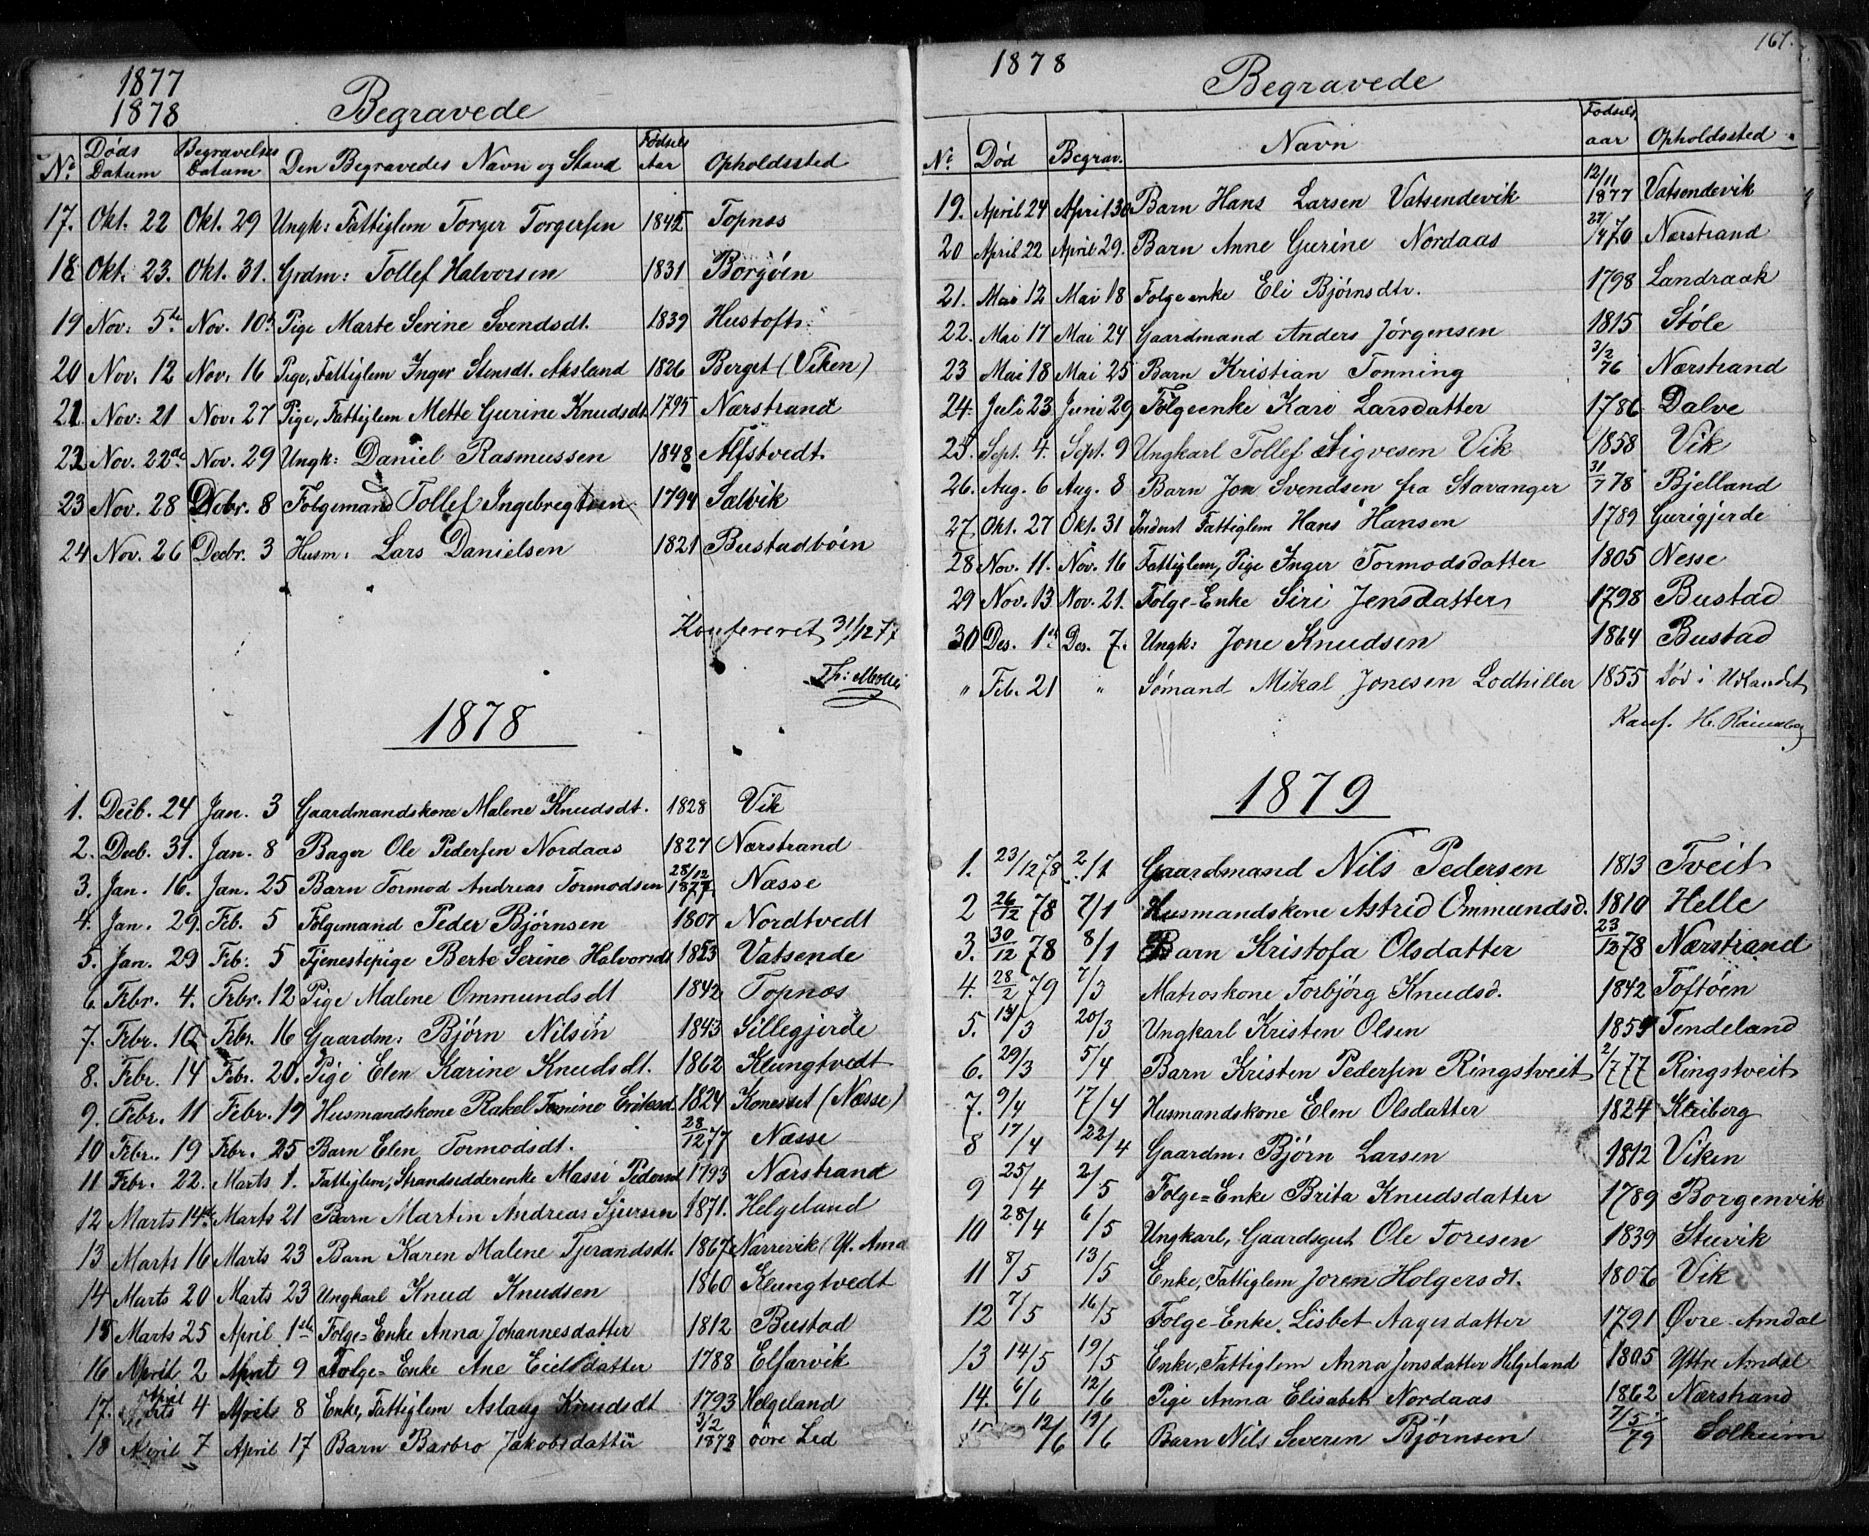 1877
1878 Begravede
No. Døds Datum Begravelses Datum Den Begravedes Navn og Stand Fødsels Aar Opholdssted
17. Okt. 22 Okt. 29 Ungk: Fattiglem Torger Torgersen 1845 Topnæs
18 Okt. 23. Okt. 31. Grdm: Tollef Halvorsen 1831 Borgøen
19 Nov: 5te Nov. 10de Pige Marte Serine Svendsdt. 1839 Hustoft
20 Nov. 12 Nov. 16 Pige, Fattiglem Inger Stensdt. Aksland 1826 Berget (Viken)
21 Nov: 21 Nov. 27 Pige, Fattiglem Mette Gurine Knudsdt 1795 Nærstrand
22 Nov. 22de Nov. 29 Ungk: Daniel Rasmussen 1848 Alfstvedt
23 Nov. 28 Decbr. 8 Folgemand Tollef Ingebregtsen 1794 Salvik
24 Nov. 26 Decbr. 3 Husm: Lars Danielsen 1821 Bustadbøin
Konfereret 31/12 77
1878
1. Decb. 24 Jan. 3 Gaardmandskone Malene Knudsdt. 1828 Vik
2. Decb. 31. Jan. 8 Bager Ole Pedersen Nordaas 1827 Nærstrand
3. Jan. 16. Jan. 25 Barn Tormod Andreas Tormodsen 28/12 1877 Næsse
4. Jan. 29. Feb. 5 Folgemand Peder Bjørnsen 1807 Nordtvedt
5. Jan. 29 Feb: 5 Tjenestepige Berte Serine Halvorsdt 1853 Vatsende
6 Febr. 4. Febr. 12 Pige Malene Ommundsdt 1842 Topnæs
7. Febr. 10 Febr. 16 Gaardm: Bjørn Nilsen 1843 Gillegjerde
8. Febr. 14 Febr. 20. Pige Elen Karine Knudsdt. 1862 Klungtvedt
9. Febr. 11 Febr. 19 Husmandskone Rakel Eriksd 1824 (Næsse)
10 Febr. 19 Febr. 25 Barn Elen Tormodsdt. 28/12 77 Næsse
11 Febr. 22. Marts 1. Fattiglem, Strandsidderenke Massi Pedersd 1793 Nærstrand
12 Marts 14de Marts 21 Barn Martin Andreas Sjursen 1871. Helgeland
13 Marts 16 Marts 23 Barn Karen Malene Tjerandsdt. 1867 Narrevik (Yt. Amd
14 Marts 20 Marts 23 Ungkarl Knud Knudsen 1860 Klungtvedt
15 Marts 25 April 1ste Folge=Enke Anna Johannesdatter 1812 Bustad
16 April 2 April 9 Folge=Enke Ane Eielsdatter 1788 Elfarvik
17. April 4 April 8 Enke, Fattiglem Aslaug Knudsdt 1793 Helgeland
18 April 7 April 17 Barn Barbro Jakobsdatter 3/2 1878 øvre Led
167.
1878 Begravede
No. Død Begrav. Navn Fødsels aar Opholdssted
19. April 24 April 30 Barn Hans Larsen Vatsendevik 12/11 1877 Vatsendevik
20 April 22 April 29. Barn Anne Gurine Nordaas 70 Nærstrand
21. Mai 12 Mai 18 Folgeenke Eli Bjørnsdtr. 1798 Landraak
22. Mai 17 Mai 24 Gaardmand Anders Jørgensen 1815 Støle
23 Mai 18 Mai 25 Barn Kristian Tonning 3/2 76 Nærstrand
24. Juli 23 Juni 29 Folgeenke Kari Larsdatter 1786 Dalve
25. Sept. 4. Sept. 9 Ungkarl Tollef Sigvesen Vik 1858 Vik
26. Aug. 6 Aug. 8 Barn Jon Svendsen fra Stavanger 31/7 78 Bjelland
27. Okt. 27 Okt. 31 Inderst Fattiglem Hans Hansen 1789 Gurigjerde
28 Nov. 11. Nov. 16 Fattiglem, Pige Inger Tormodsdatter 1805 Nesse
29 Nov. 13 Nov. 21. Folge-Enke Siri Jensdatter 1798 Bustad
30 Des. 1ste Des. 7. Ungk: Jone Knudsen 1864 Bustad
" Feb. 21 " Sømand Mikal Jonesen Lodhiller 1855 Død i Udlandet
Konf. H.
1879
1. 23/12 78 2/1 Gaardmand Nils Pedersen 1813 Tveit
2 26/12 78 7/1 Husmandskone Astrid Ommundsd. 1810 Helle
3. 30/12 78 8/1 Barn Kristofa Olsdatter 23/12 78 Nærstrand
4. 28/2 79 7/3 Matroskone Torbjørg Knudsd. 1842 Toftøen
5. 13/3 20/3 Ungkarl Kristen Olsen 1859 Tendeland
6. 29/3 5/4 Barn Kristen Pedersen Ringstveit 2/7 77 Ringstveit
7. 9/4 17/4 Husmandskone Elen Olsdatter 1824 Kleiberg
8 17/4 22/4 Gaardm: Bjørn Larsen 1812 Viken
9 25/4 2/5 Folge=Enke Brita Knudsdatter 1789 Borgenvik
10 28/4 6/5 Ungkarl, Gaardsgut Ole Toresen 1839 Stuvik
11 8/5 13/5 Enke, Fattiglem Joren Holgersdt. 1807 Vik
12 7/5 16/5 Folge-Enke Lisbet Aagesdatter 1791 Øvre Amdal
13 14/5 19/5 Enke, Fattiglem Anna Jensdatter Helgeland 1805 Yttre Amdal
14. 6/6 12/6 Pige Anna Elisabet Nordaas 1862 Nærstrand
15 12/6 19/6 Barn Nils Severin Bjørnsen 7/5 79 Solheim